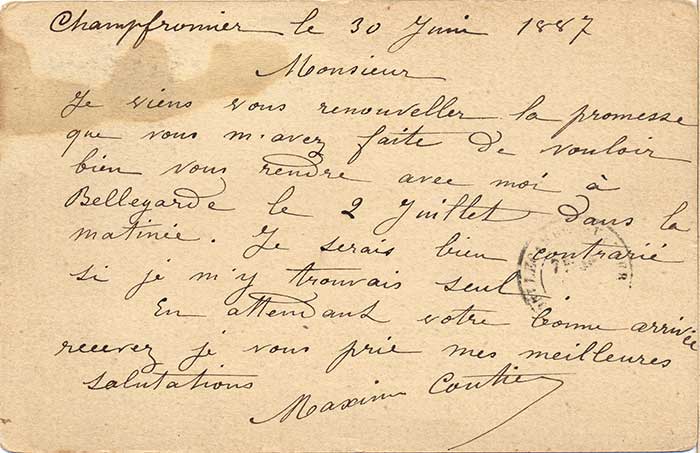 Champfromier le 30 Juin 1887
Monsieur
Je viens vous renouveller la promesse
que vous m'avez faite de vouloir
bien vous rendre avec moi à
Bellegarde le 2 Juillet dans la
matinée. Je serais bien contrarié
si je m'y trouvais seul.
En attendant votre bonne arrivée
recevez je vous prie mes meilleures
salutations
Maxime